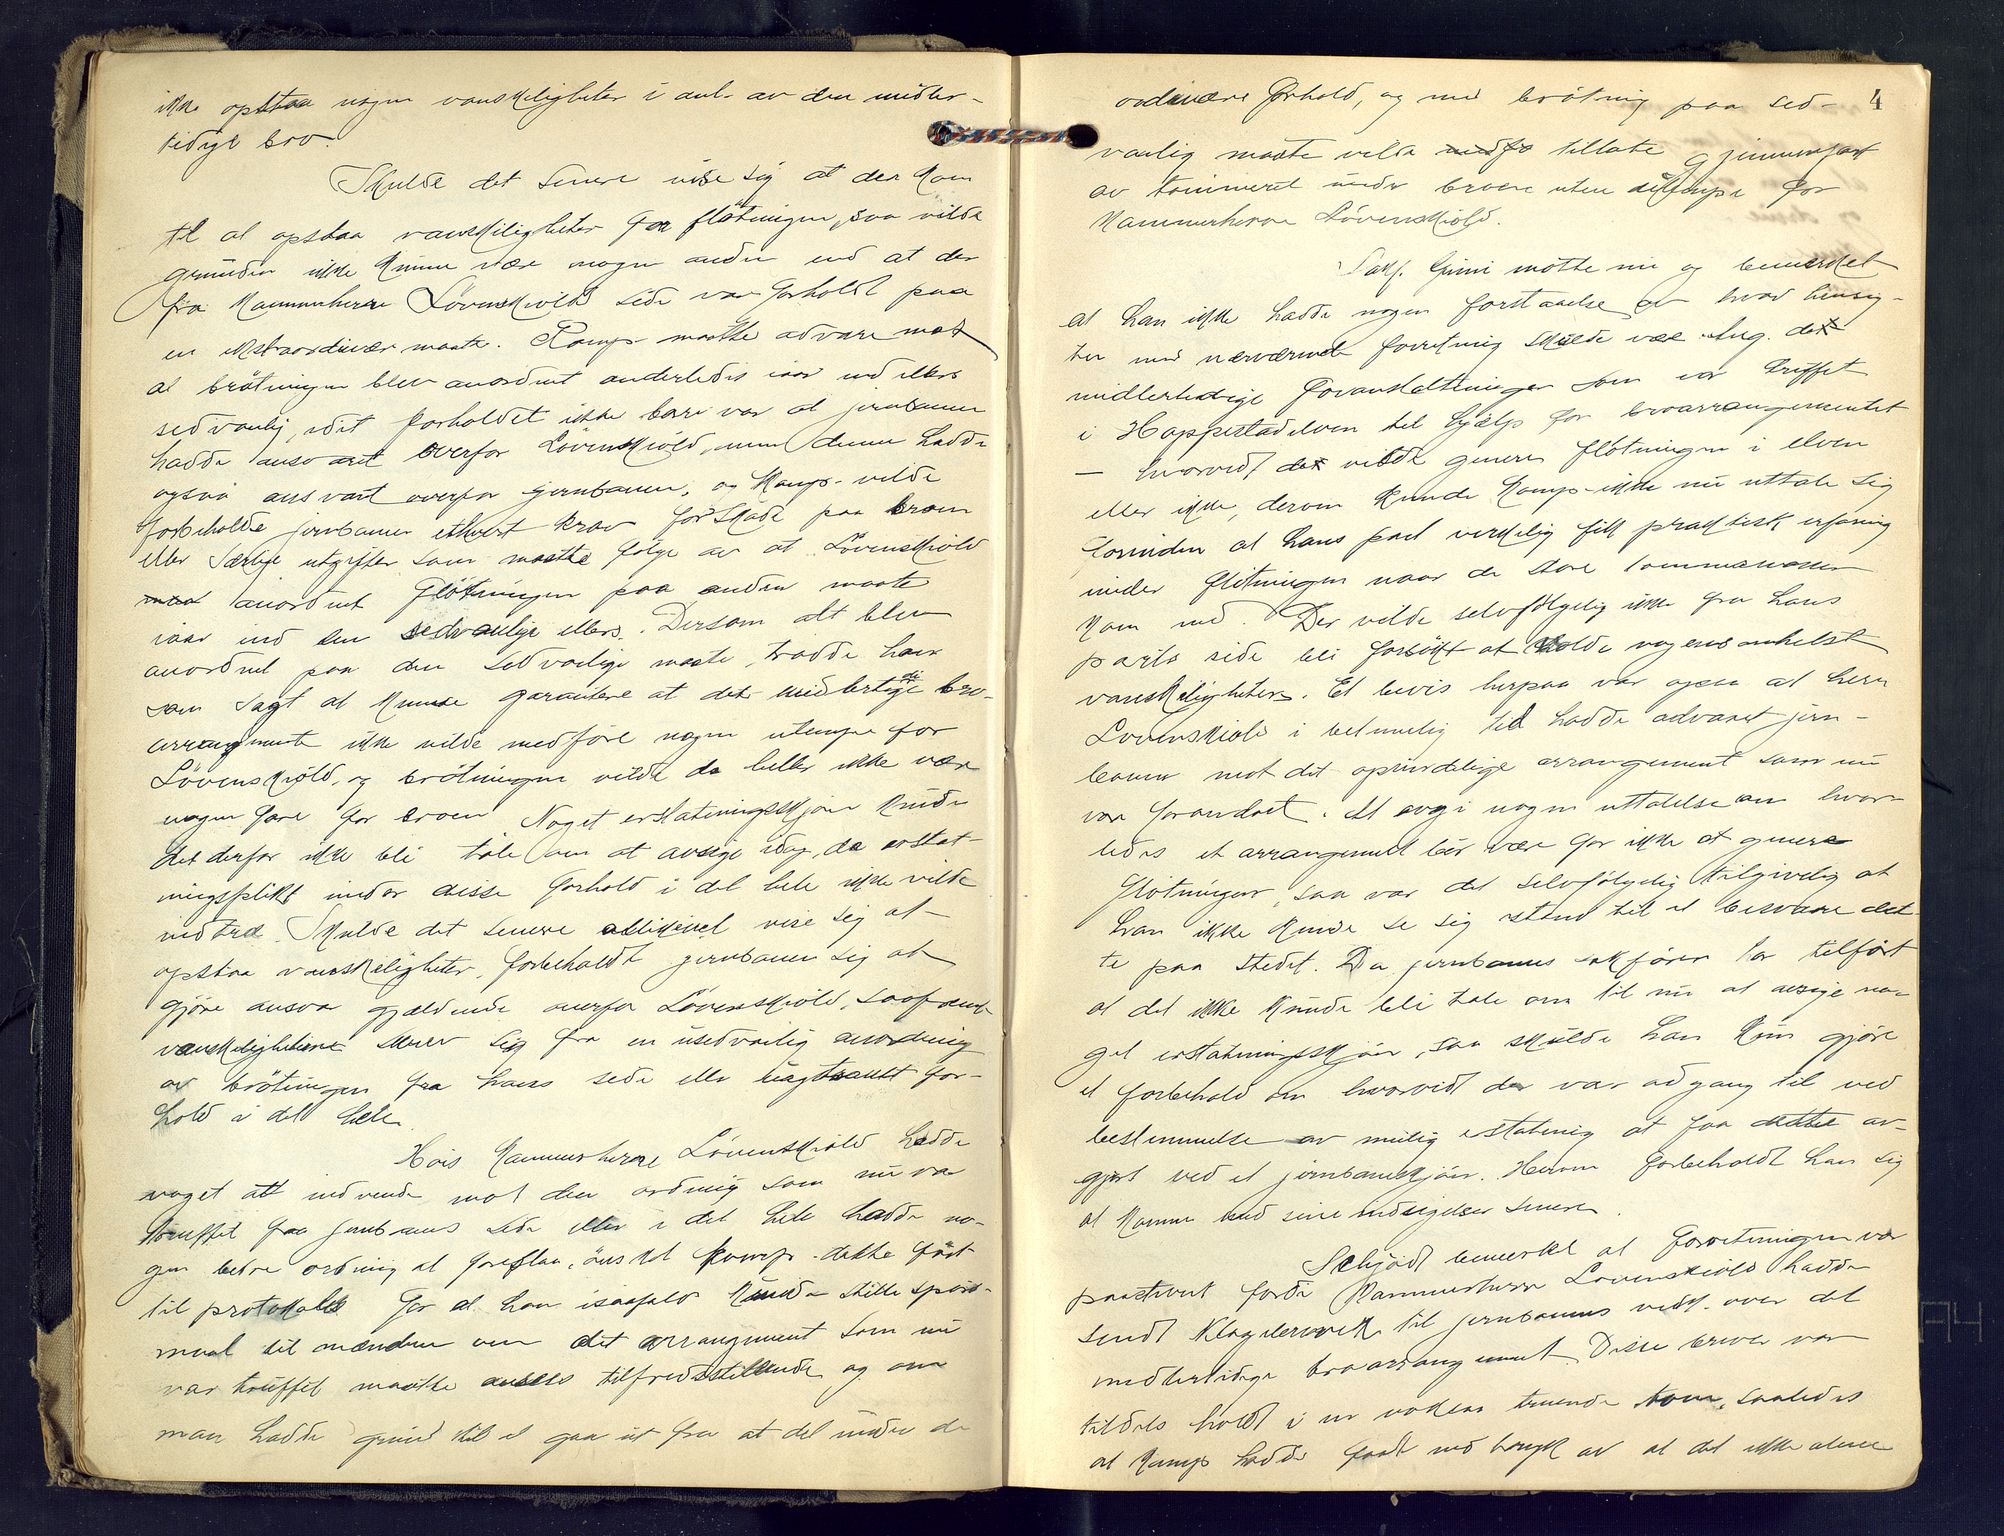 ikke opstaa nogen vanskeligheter i anl. av den midler-
tidige bro.
Skulde det senere vise sig at der kom
til at opstaa vanskeligheter for flötningen, saa vilde
grunden ikke kunne være nogen anden end at der
fra Kammerherre Lövenskiolds side var forholdt paa
en ekstraordinær maate. Komp. maatte advare mot
at brötningen blev anordnet anderledes iaar end ellers
sedvanlig, idet forholdet ikke bare var at jernbanen
hadde ansvaret overfor Lövenskiold, men denne hadde
ogsaa ansvart overfor jernbanen, og Komp. vilde
forbeholde jernbanen ethvert krav for skade paa broen
eller særlige utgifter som maatte følge av at Lövenskiold
anordnet flötningen paa anden maate
iaar end den sedvanlige ellers. Dersom alt blev
anordnet paa den sedvanlige maate, trodde han
som sagt at kunne garantere at det midlertidige bro-
arrangement ikke vilde medföre nogen ulempe for
Lövenskiold, og brötningen vilde da heller ikke være
nogen fare for broen. Noget erstatningsskjön kunde
det derfor ikke bli tale om at avsige idag, da erstat-
ningsplikt under disse forhold i det hele ikke vilde
indtræ. Skulde det senere allikevel vise sig at
opstaa vanskeligheter, forbeholdt jernbanen sig at
gjöre ansvar gjældende overfor Lövenskiold, saafremt
vanskelighetene skrev sig fra en usedvanlig anordning
av brötningen fra hans side eller uagtsomt for-
hold i det hele.
Hvis Kammerherre Lövenskiold hadde
noget att indvende mot den ordning som nu var
truffet fra jernbanens side eller i det hele hadde no-
gen bedre ordning at foreslaa, önsket Komp. dette fört
til protokols for at han isaafald kunde stille spörs-
maal til mændene om det arrangement som nu
var truffet maatte ansees tilfredsstillende og om
man hadde grund til at gaa ut fra at det under de
4
ordinære forhold, og med brötning paa sed-
vanlig maate vilde tillate gjennemfart
av tommeret under broen uten ulempe for
Kammerherre Lövenskiold.
Sakf. Grini mötte nu og bemerket
at han ikke hadde nogen forstaaelse av hvad hensig-
ten med nærværende forretning skulde være. Ang. de
midlertidige foranstaltninger som var truffet
i Hoppestadelven til hjælp for broarrangementet
– hvorvidt det vilde genere flötningen i elven
eller ikke, derom kunde Komp. ikke nu uttale sig
forinden at hans part virkelig fik praktisk erfaring
under flötningen naar de store tömmermasser
kom ned. Der vilde selvfölgelig ikke fra hans
parts side bli forsökt at volde nogensomhelst
vanskeligheter. Et bevis herpaa var ogsaa at herr
Lövenskiold i betimelig tid hadde advaret jern-
banen mot det oprindelige arrangement som nu
var forandret. At avgi nogen uttalelse om hvor-
ledes et arrangement bör være for ikke at genere
flötningen, saa var det selvfölgelig tilgivelig at
han ikke kunde se sig istand til at besvare det-
te paa stedet. Da jernbanens sakförer har tilfört
at det ikke kunde bli tale om til nu at avsige no-
get erstatningsskjön, saa skulde han kun gjöre
et forbehold om hvorvidt der var adgang til ved
bestemmelse av mulig erstatning at faa dette av-
gjort ved et jernbaneskjön. Herom forbeholdt han sig
at komme med sine indsigelser senere.
Schjödt bemerket at forretningen var
paastevnt fordi Kammerherre Lövenskiold hadde
sendt klageskrivelser til jernbanens vedk. over det
midlertidige broarrangement. Disse brever var
tildels holdt i en noksaa truende tone, saaledes
at Komp. hadde faat indtryk av at det ikke alene